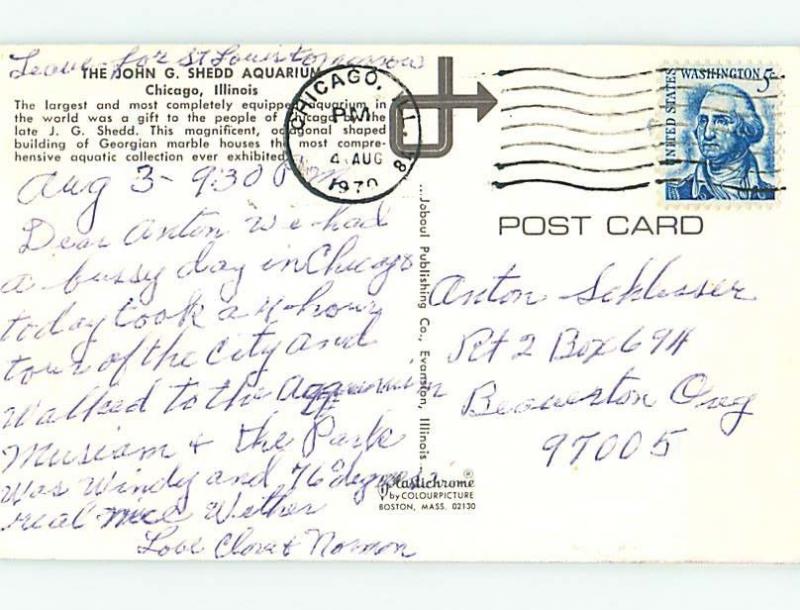 Leave for St Louis tomorrow
THE JOHN G. SHEDD AQUARIUM
Chicago, Illinois
The largest and most completely equipped aquarium in
the world was a gift to the people of Chicago by the
late J. G. Shedd. This magnificent, octagonal shaped
building of Georgian marble houses the most compre-
hensive aquatic collection ever exhibited.
Aug 3 - 9:30 Pm
Dear Anton We had
a bussy day in Chicago
today took a 4-hour
tour of the City and
walked to the Aquarium
Musiam + the Park
was Windy and 76° degrees
real nice Wether
Love Clora & Norman
CHICAGO, IL.
PM
4 AUG
1970
UNITED STATES
WASHINGTON 5c
POST CARD
Anton Schlusser
Rt 2 Box 694
Beaverton Oreg
97005
...Joboul Publishing Co., Evanston, Illinois
Plastichrome®
by COLOURPICTURE
BOSTON, MASS. 02130